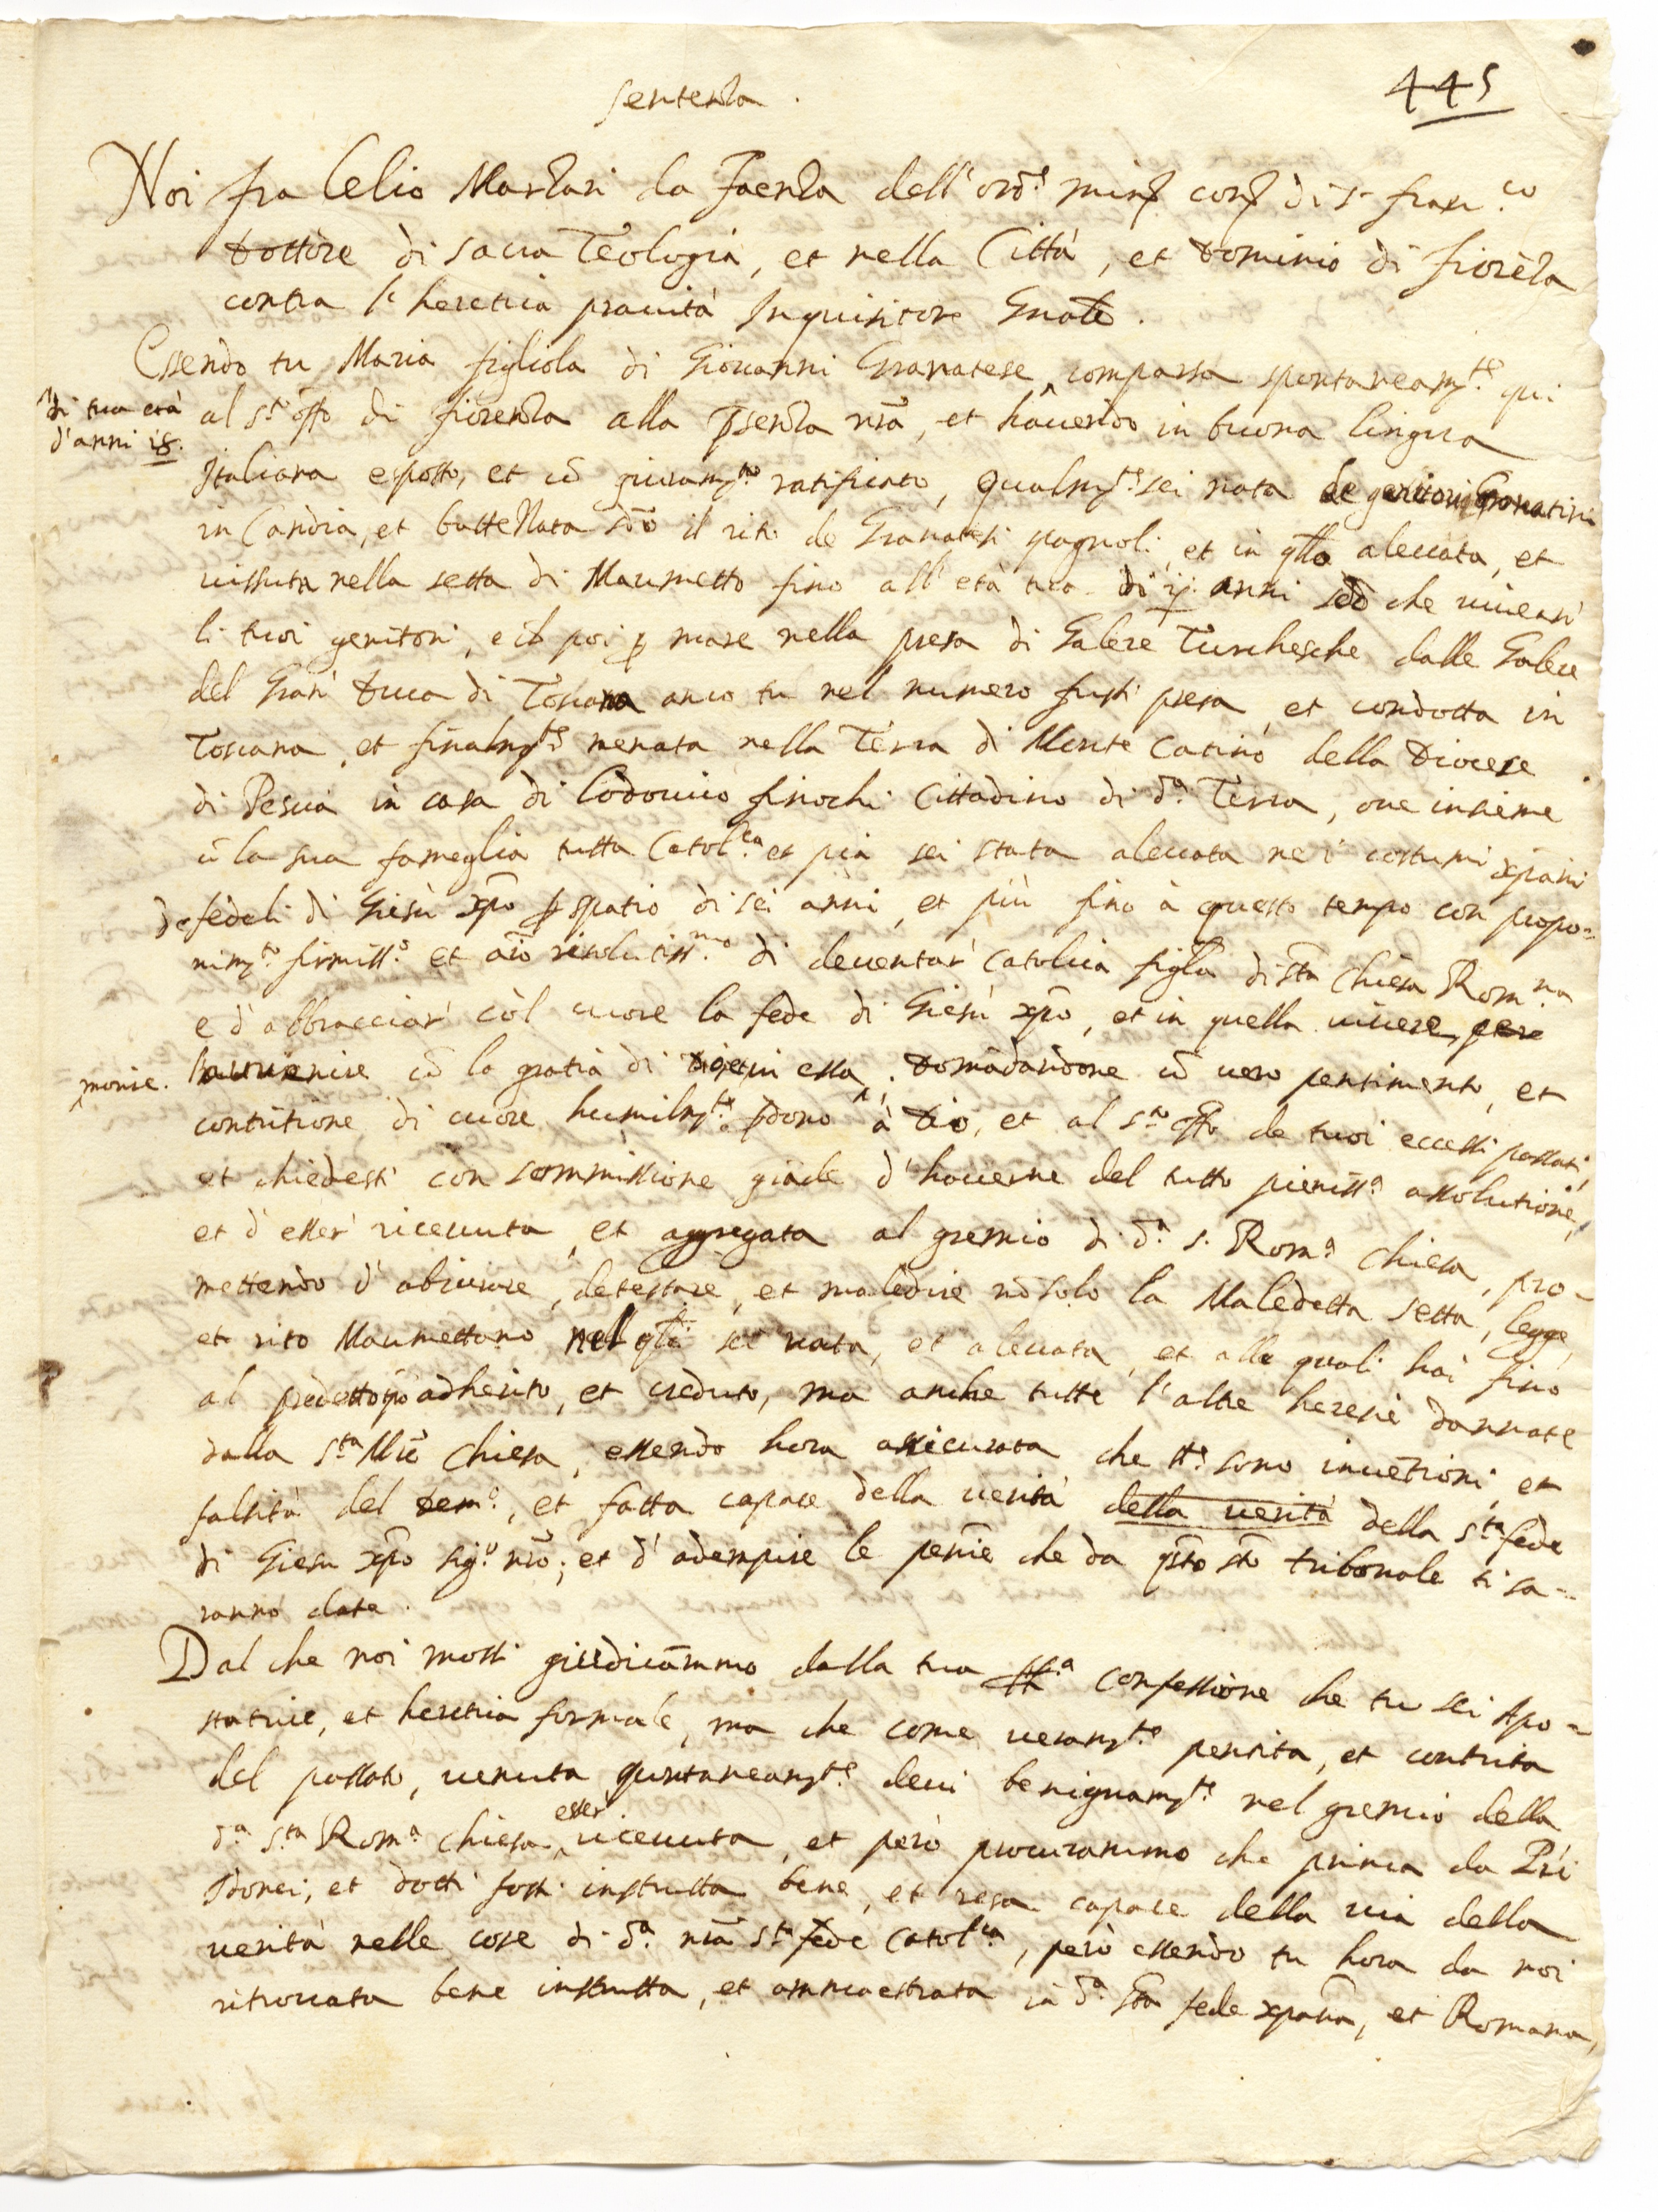 445
Sentenza.
Noi fra Lelio Marzari da Faenza dell'ord.e min. con. di S. Fran.co
Dottore di sacra Teologia, et nella Città, et Dominio di Fiorẽza
contra l'heretica pravità Inquisitore Gnale.
Essendo tu Maria figliola di Giovanni Granatese ^ comparsa spontaneam.te qui
^di tua età
d'anni 18.
al s.to offo di Fiorenza alla pñsenza nrã, et havendo in buona lingua
Italiana esposto, et cõ giuram.to ratificato, qualm.te sei nata de genitori Granatini
in Candia, et battezzata sdõ il rito de Granatesi spagnoli, et in qllo allevata, et
vissuta nella setta di Maumetto fino all'età tua di anni sdõ che vivevan
li tuoi genitori, e poi p mare nella presa di Galere Turchesche dalle Galere
del Gran Duca di Toscana anco tu nel numero fusti presa, et condotta in
Toscana, et finalm.te menata nella Terra di Monte Catino della Diocese
di Pescia in casa di Lodovico Finochi Cittadino di d.a Terra, ove insieme
cõ la sua fameglia tutta Catol.ca et pia sei stata allevata nei costumi xp̃ani
de fedeli di Giesù xp̃o p spatio di sei anni, et più fino à questo tempo con propo=
nim.to firmiss.o et aĩo risolutiss.mo di deventar Catolica figla di sta Chiesa Rom.na
e d'abbracciar còl cuore la fede di Giesù xp̃o, et in quella vivere, pere
^morire. cõ la gratia di Dio in essa, Domãdandone cõ vero pentimento, et
contritione di cuore humilm.te pdono à Dio, et al s.to offo de tuoi eccessi passati,
et chiedesti con sommissione grãde d'haverne del tutto pieniss.a assolutione,
et d'esser ricevuta, et aggregata al gremio di d.a S. Rom.a Chiesa, pro-
mettendo d'abiurare, detestare, et maledire nõ solo la Maledetta setta, legge,
et rito Maumettano nel qle sei nata, et allevata, et alle quali hai fino
al predetto adherito, et creduto, ma anche tutte l'altre heresie dannate
dalla S.ta Mrẽ Chiesa, essendo hora assicurata che tt.e sono invẽtioni, et
falsità del Dem.o, et fatta capace della verità della verità della S.ta fede
di Giesu xp̃o sig.r nrõ; et d'adempire le penitẽ che da qsto sto tribonale ti sa=
ranno date.
Dal che noi mossi giudicãmmo dalla tua stt.a confessione che tu sei Apo=
statrice, et heretica formale, ma che come veram.te pentita, et contrita
del passato, venuta spontaneam.te devi benignam.te nel gremio della
d.a S.ta Rom.a Chiesa ^esser ricevuta, et però procurammo che prima da Pri
Idonei, et dotti fosti instrutta bene, et resa capace della via della
verità nelle cose di d.a nrã S.ta fede Catol.ca, però essendo tu hora da noi
ritrovata bene instrutta, et ammaestrata in d.a sta fede xp̃ana, et Romana,